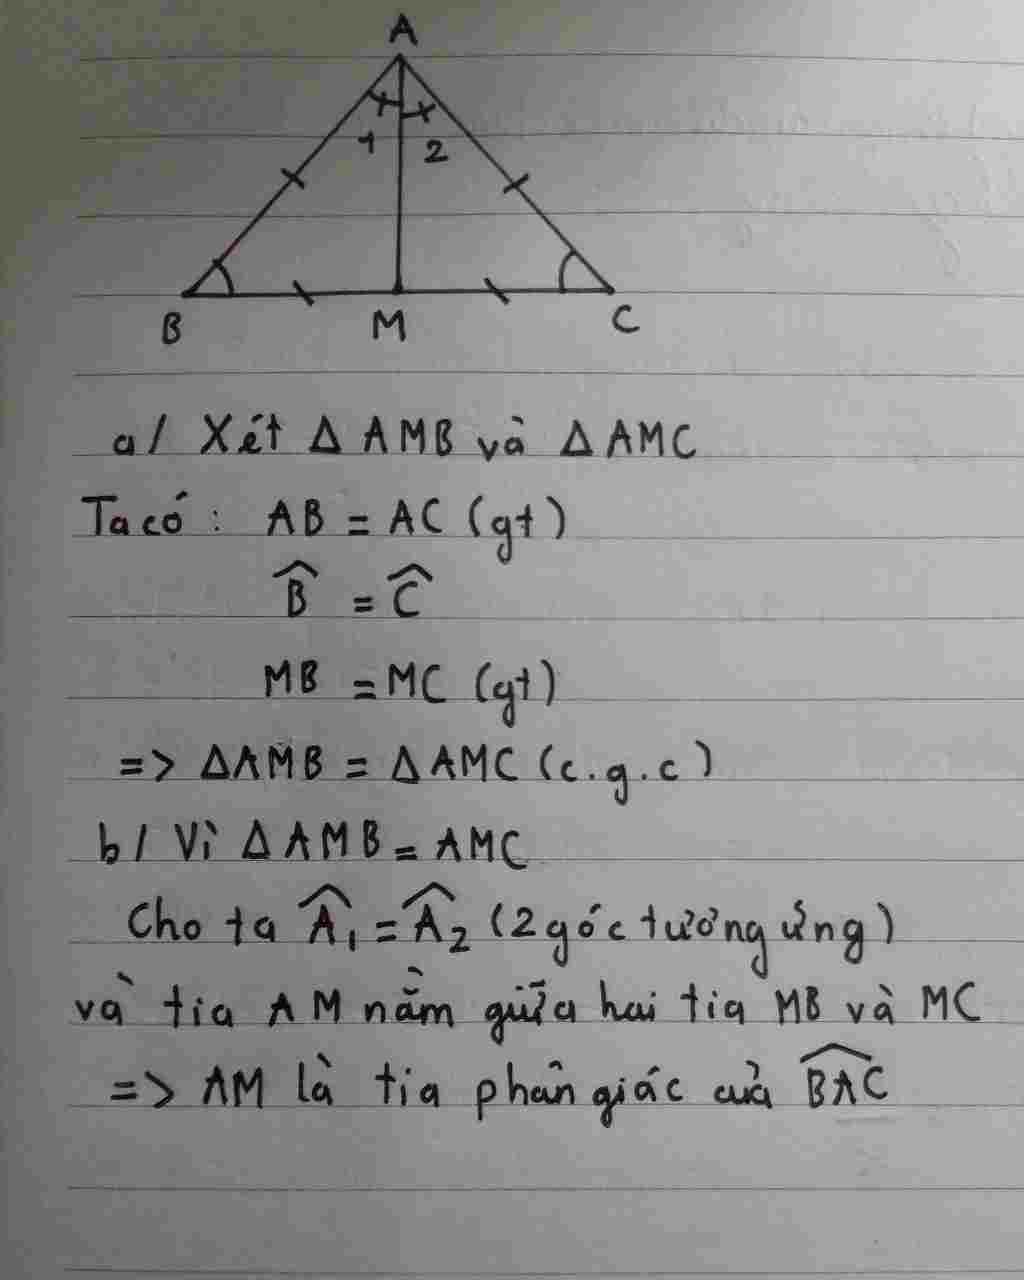 A
1 2
B M C
a/ Xét Δ AMB và Δ AMC
Ta có : AB = AC (gt)
B̂ = Ĉ
MB = MC (gt)
=> ΔAMB = ΔAMC (c.g.c)
b/ Vì ΔAMB = AMC
Cho ta Â₁ = Â₂ (2 góc tương ứng)
và tia AM nằm giữa hai tia MB và MC
=> AM là tia phân giác của \widehat{BAC}